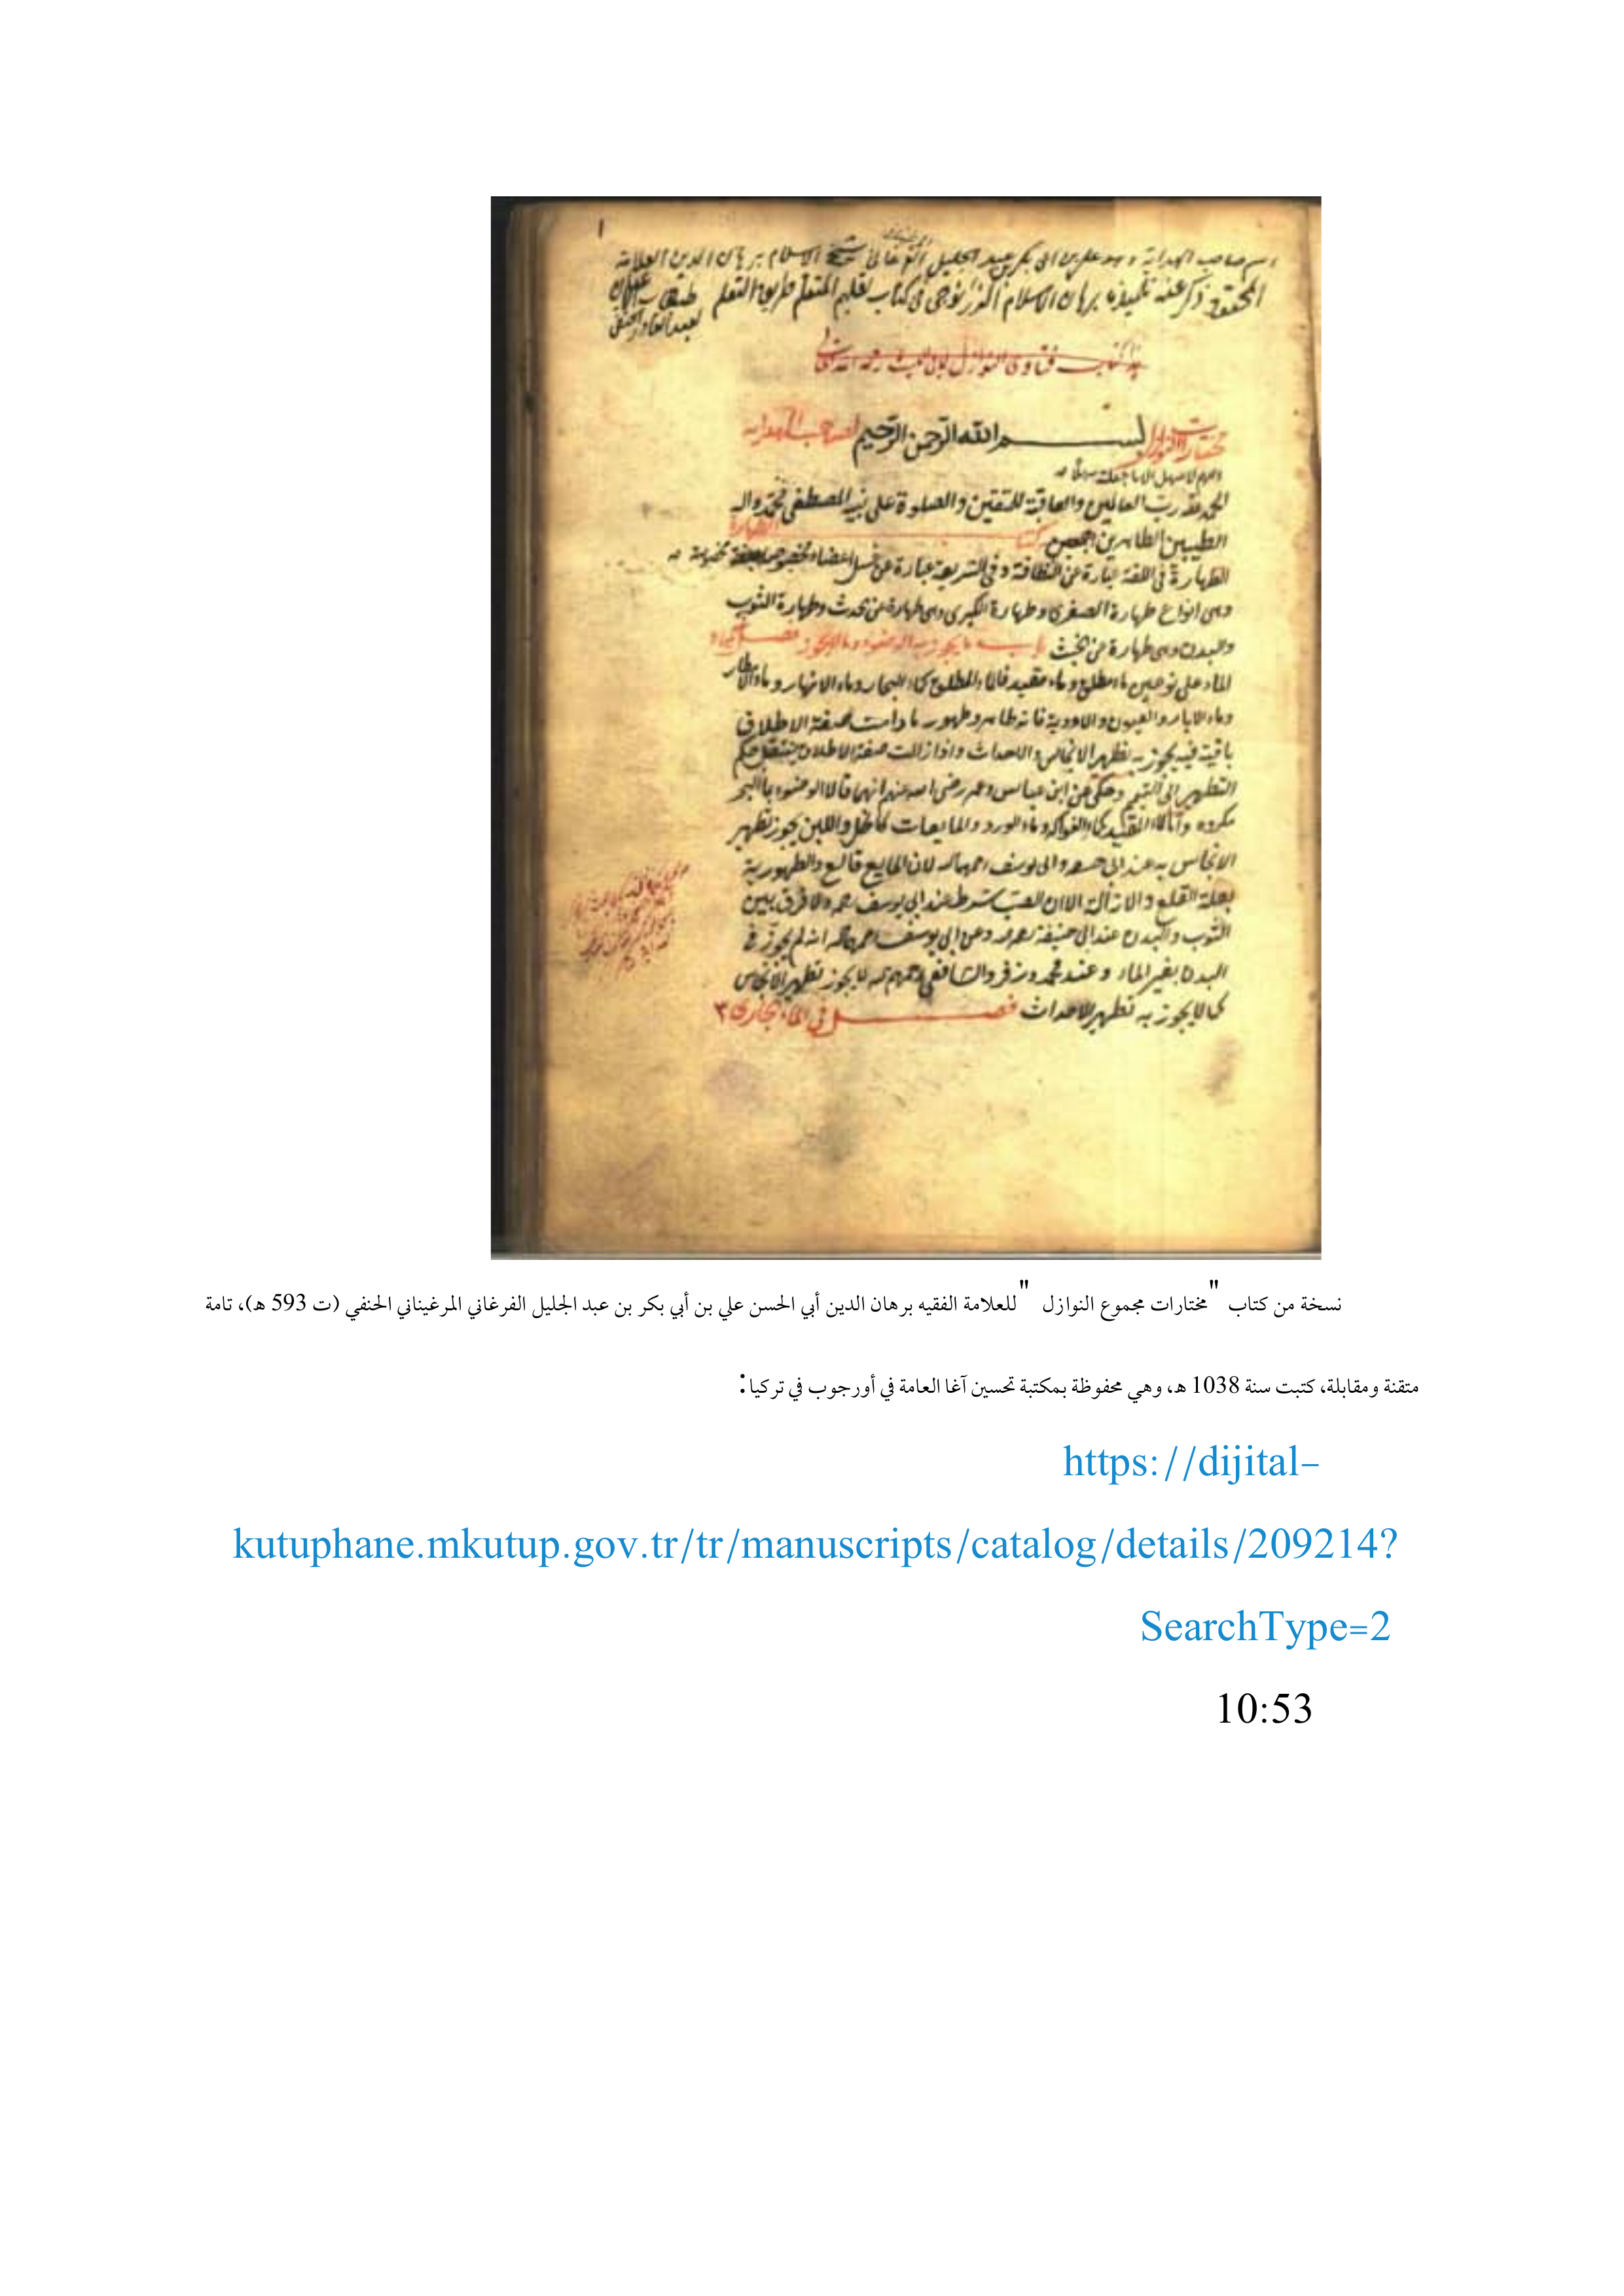 ١
اسم صاحب الهداية وهو علي بن ابي بكر بن عبد الجليل الفرغاني شيخ الاسلام برهان الدين العلامة
المحقق ذكر عنه تلميذه برهان الاسلام الزرنوجي في كتاب تعليم المتعلم طريق التعلم طبقات
لعبد القادر الحنفي
كتاب فتاوى النوازل لابي الليث رحمه الله
مختارات النوازل بسم الله الرحمن الرحيم لصاحب الهداية
اللهم لا سهل الا ما جعلته سهلا
الحمد لله رب العالمين والعاقبة للمتقين والصلوة على نبيه المصطفى محمد واله
الطيبين الطاهرين اجمعين كتاب الطهارة
الطهارة في اللغة عبارة عن النظافة وفي الشريعة عبارة عن غسل اعضاء مخصوصة
وهي انواع طهارة الصغرى وطهارة الكبرى وهي طهارة من حدث وطهارة الثوب
والبدن وهي طهارة من الخبث باب ما يجوز به الوضوء وما لا يجوز فصل
الماء على نوعين ماء مطلق وماء مقيد فالماء المطلق كماء البحار وماء الانهار وماء الامطار
وماء الابار والعيون والاودية فانه طاهر وطهور ما دامت صفة الاطلاق
باقية فيه يجوز به تطهير الانجاس والاحداث واذا زالت صفة الاطلاق ينتقل حكم
التطهير الى التيمم وحكي عن ابن عباس وعمر رضي الله عنهم انهما قالا الوضوء بماء البحر
مكروه واما الماء المقيد كماء الفواكه وماء الورد والمايعات كالخل واللبن يجوز تطهير
الانجاس به عند ابي حنيفة وابي يوسف رحمهما الله لان المايع قالع والطهورية
بعلة القلع والازالة الا ان الصب شرط عند ابي يوسف رحمه ولا فرق بين
الثوب والبدن عند ابي حنيفة رحمه وعن ابي يوسف رحمه الله انه لم يجوز في
البدن بغير الماء وعند محمد وزفر والشافعي رحمهم الله لا يجوز تطهير الانجاس
كما لا يجوز به تطهير الاحداث فصل في الماء الجاري
نسخة من كتاب "مختارات مجموع النوازل" للعلامة الفقيه برهان الدين أبي الحسن علي بن أبي بكر بن عبد الجليل الفرغاني المرغيناني الحنفي (ت 593 هـ)، تامة
متقنة ومقابلة، كتبت سنة 1038 هـ، وهي محفوظة بمكتبة تحسين آغا العامة في أورجوب في تركيا:
https://dijital-
kutuphane.mkutup.gov.tr/tr/manuscripts/catalog/details/209214?
SearchType=2
10:53